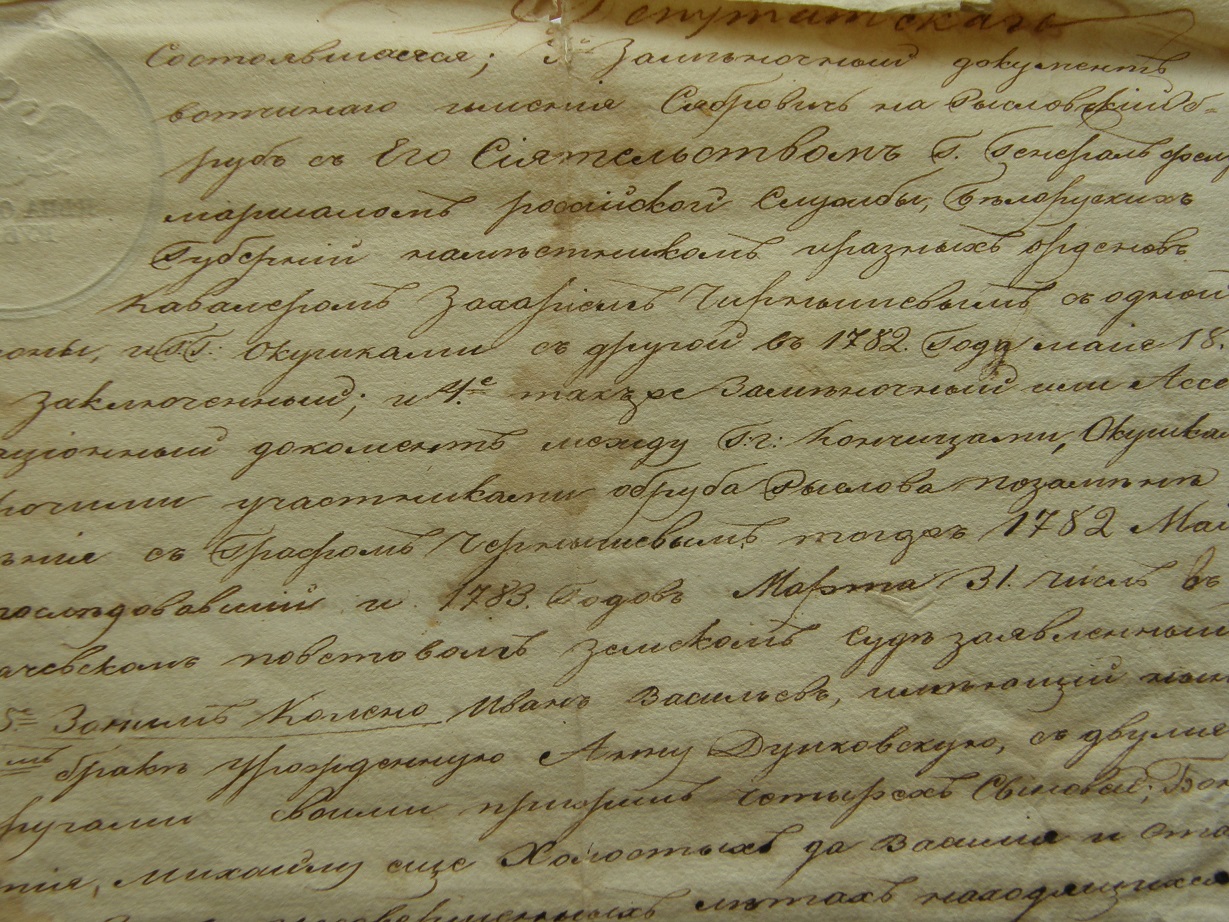 Депутатская
состоявшаяся; 3е Замѣночный документъ
вотчинаго имѣнія Сябровичъ на Рысловскій об-
рубъ съ Его Сіятельствомъ Г. Генералъ фель
маршаломъ російской Службы, Бѣлорускихъ
Губерній намѣстникомъ и разныхъ орденовъ
Кавалеромъ Захаріемъ Чернышевымъ съ одной
роны, и ГГ. Окушками съ другой въ 1782. Года маіе 18.
Заключенный; и 4.е такъже Замѣночный или Ассе
аціонный докоментъ между Г:г: Кончицами, Окушка
рочими участниками обруба Рыслова позамѣнѣ
ѣнія съ Графомъ Чернышевымъ тогдаъ 1782 Ма
послѣдовавшій и 1783. Годовъ Марта 31. числъ въ
ачевскомъ повѣтовомъ Земскомъ Судѣ заявленный
5е Занимъ Колено Иванъ Васильевъ, имѣющій нын
мъ бракѣ урожденную Анну Дунковскую, съ двумя
ругами своими прижилъ Четырехъ Сыновей; Бон
тія, Михайлу еще Холостыхъ да Василія и Ста
лѣтахъ находящихся